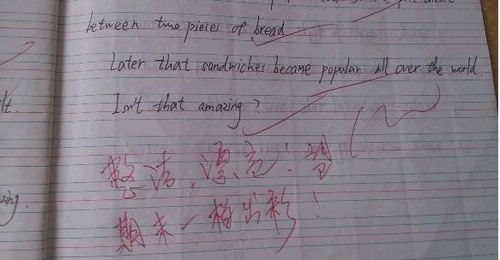 between two pieces of bread
Later that sandwiches became popular all over the world
Isn't that amazing?
整洁,漂亮!
期末一
出彩!
lt.
zing.